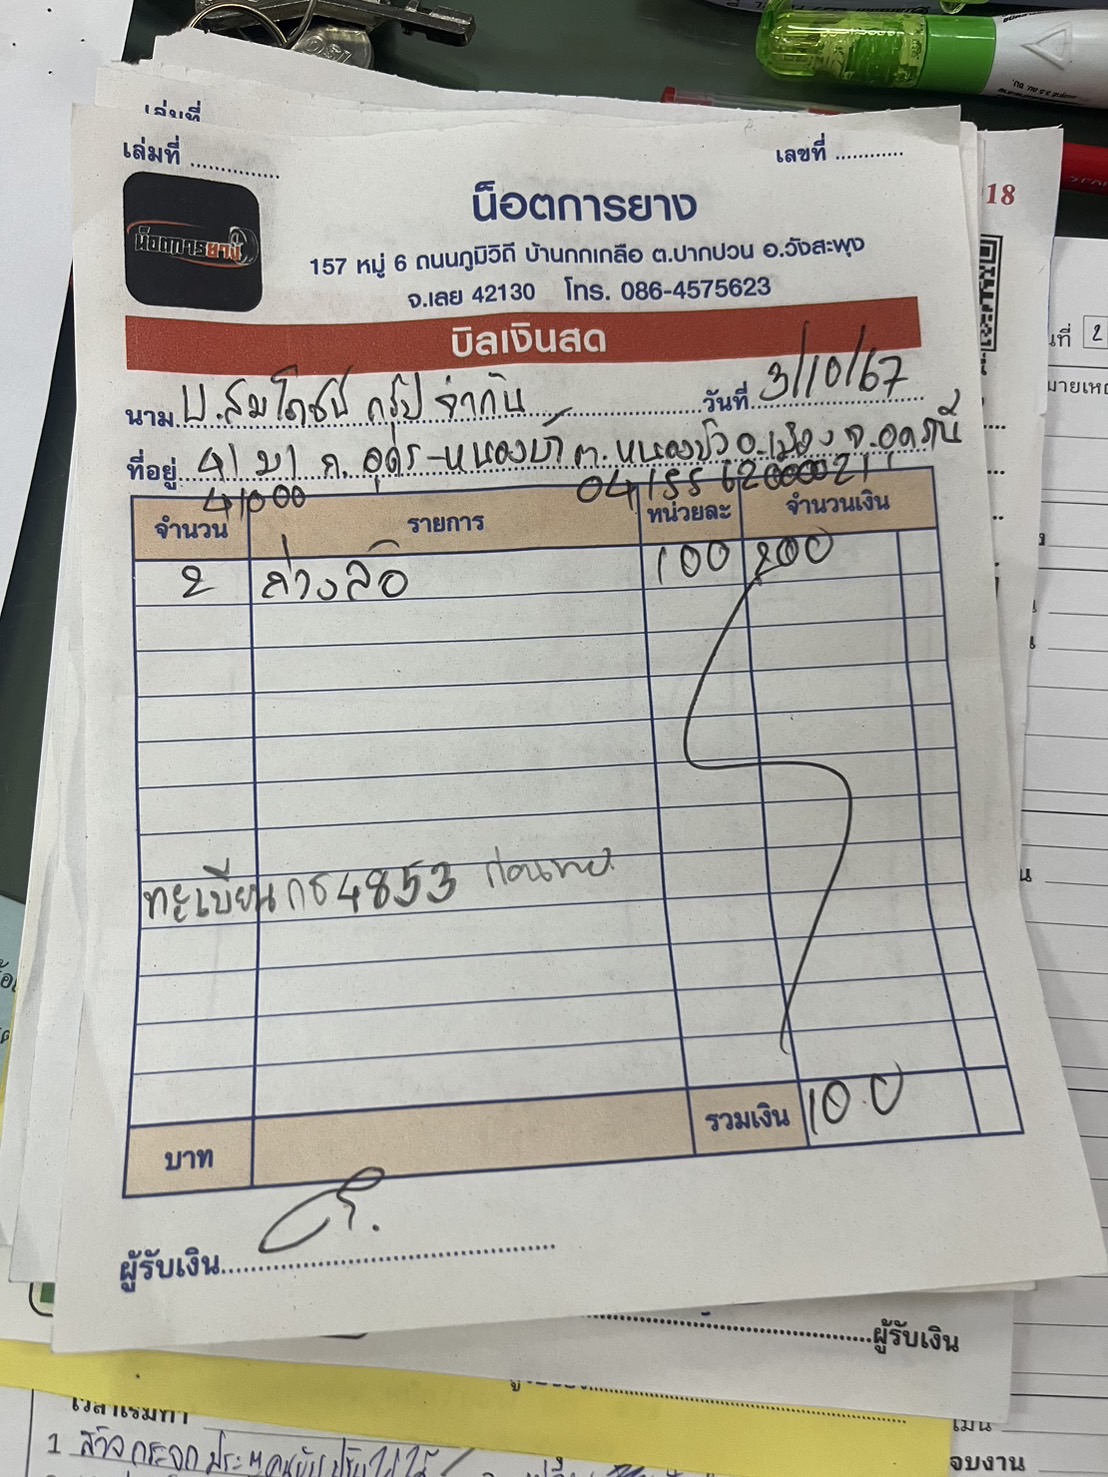 เล่มที่
เล่มที่ ............ เลขที่ ............
18
น็อตการยาง
น็อตการยาง
157 หมู่ 6 ถนนภูมิวิถี บ้านกกเกลือ ต.ปากปวน อ.วังสะพุง
จ.เลย 42130 โทร. 086-4575623
บิลเงินสด
นาม บ.สมโภชน์ กรุ๊ป จำกัด วันที่ 3/10/67
ที่อยู่ ถ. อุดร-หนองบัว ต.หนองบัว อ.เมือง จ.อุดรธานี
41000 0415562000021
จำนวน รายการ หน่วยละ จำนวนเงิน
2 ถ่วงล้อ 100 200
ทะเบียน กธ 4853
รวมเงิน 100
บาท
ผู้รับเงิน
ผู้รับเงิน
จบงาน